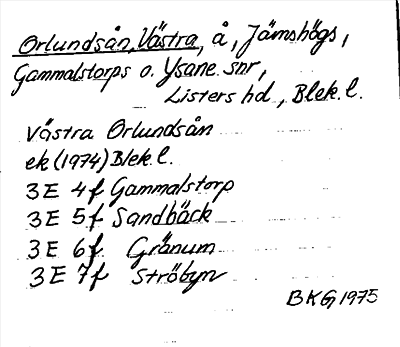 Orlundsån, Västra, å, Jämshögs,
Gammalstorps o. Ysane snr,
Listers hd, Blek. l.
Västra Orlundsån
ek (1974) Blek. l.
3 E 4 f Gammalstorp
3 E 5 f Sandbäck
3 E 6 f Grånum
3 E 7 f Ströbyn
BKG 1975